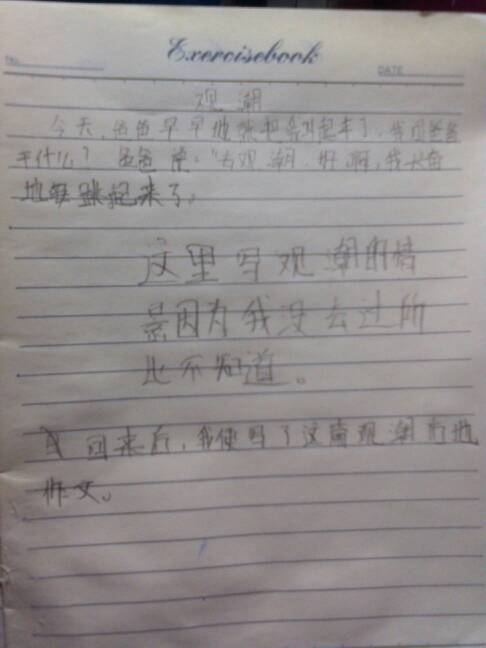 Exercisebook
NO.
DATE
观潮
今天,爸爸早早地就把我叫起来了,我问爸爸
干什么?爸爸说:"去观潮.好啊,我大声
地跳起来了。
这里写观潮的情
景因为我没去过所
比不知道。
回来后,我便写了这篇观潮的
作文。